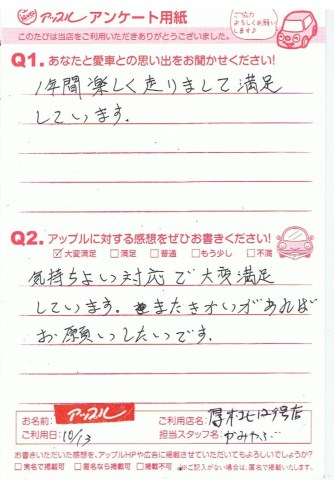 アップル アンケート用紙
ご協力
よろしくお願い
します♪
このたびは当店をご利用いただきありがとうございました。
Q1. あなたと愛車との思い出をお聞かせください!
1年間楽しく走りまして満足
しています。
Q2. アップルに対する感想をぜひお書きください!
☑大変満足 □満足 □普通 □もう少し □不満
気持ちよい対応で大変満足
しています。またきかいがあれば
お願いしたいです。
お名前: アップル
ご利用店名: 厚木北店
ご利用日: 10/13
担当スタッフ名:
お書きいただいた感想を、アップルHPや広告に掲載させていただいてもよろしいでしょうか?
□実名で掲載可 □匿名なら掲載可 □掲載不可 ※ご記入がない場合は、匿名で掲載いたします。